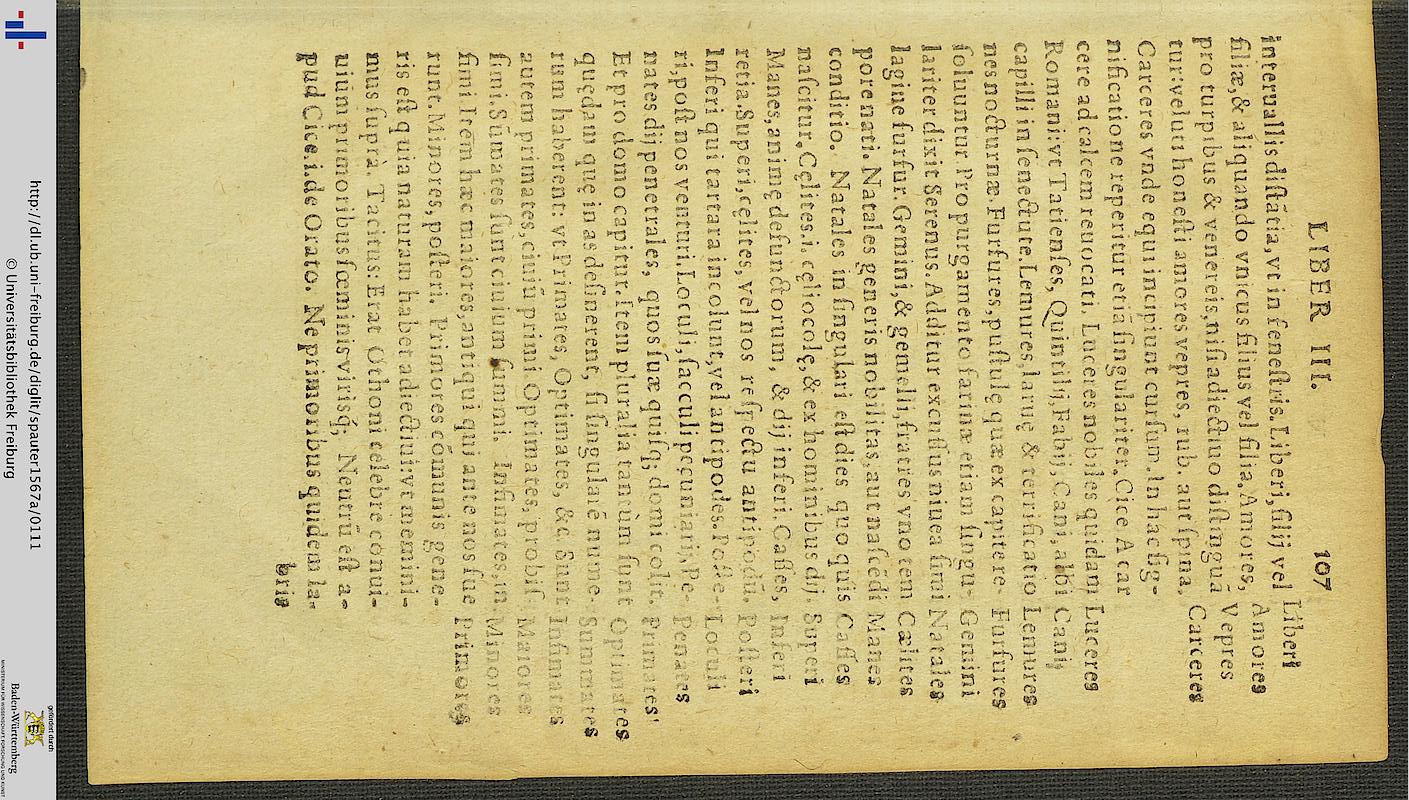 LIBER II. 107
interuallis distātia, vt in fenestris. Liberi, filij vel Liberi
filiæ, & aliquando vnicus filius vel filia. Amores, Amores
pro turpibus & venereis, nisi adiectiuo distinguā Vepres
tur: veluti honesti amores vepres, rub. aut spina. Carceres
Carceres vnde equi incipiunt cursum. In hac sig-
nificatione reperitur etiā singulariter. Cice A car
cere ad calcem reuocati. Luceres nobiles quidam Luceres
Romani: vt Tatienses, Quintilij, Fabij, Cani albi Cani,
capilli in senectute. Lemures, laruę & terrificatio Lemures
nes nocturnæ. Furfures, pustulę quæ ex capite re- Furfures
soluuntur Pro purgamento farinæ etiam singu- Gemini
lariter dixit Serenus. Additur excussus niuea simi Natales
lagine furfur. Gemini, & gemelli, fratres vno tem Cælites
pore nati. Natales generis nobilitas, aut nascēdi Manes
conditio. Natales in singulari est dies quo quis Casses
nascitur, Cęlites. i. cęliocolę, & ex hominibus dij Superi
Manes, animę defunctorum, & dij inferi. Casses, Inferi
retia. Superi, cęlites, vel nos respectu antipodū. Posteri
Inferi qui tartara incolunt, vel antipodes. Poste- Loculi
ri, post nos venturi. Loculi, sacculi pęcuniarij, Pe- Penates
nates dij penetrales, quos suæ quisq; domi colit. Primates
Et pro domo capitur. Item pluralia tantùm sunt Optimates
quędam quę in as desinerent, si singularē nume- Summates
rum haberent: vt Primates, Optimates, &c. Sunt Infimates
autem primates, ciuiū primi Optimates, probis Maiores
simi. Sūmates sunt ciuium summi. Infimates, in Minores
simi Item hæc maiores, antiqui qui ante nos fue Primores
runt. Minores, posteri. Primores cōmunis gene-
ris est quia naturam habet adiectiui vt memini-
mus suprà. Tacitus: Erat Othoni celebre conui-
uium primoribus fœminis virisq; Neutrū est a-
pud Cice. i. de Orato. Ne primoribus quidem la-
bris
http://dl.ub.uni-freiburg.de/diglit/spauter1567a/0111
© Universitätsbibliothek Freiburg
gefördert durch
Baden-Württemberg
MINISTERIUM FÜR WISSENSCHAFT, FORSCHUNG UND KUNST